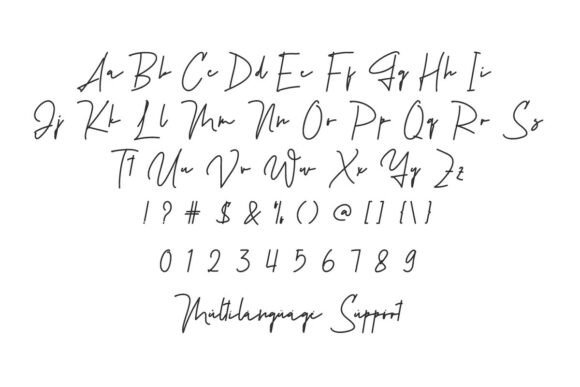 Aa Bb Cc Dd Ee Ff Gg Hh Ii
Jj Kk Ll Mm Nn Oo Pp Qq Rr Ss
Tt Uu Vv Ww Xx Yy Zz
! ? # $ & % ( ) @ [ ] { \ }
0 1 2 3 4 5 6 7 8 9
Multilanguage Support